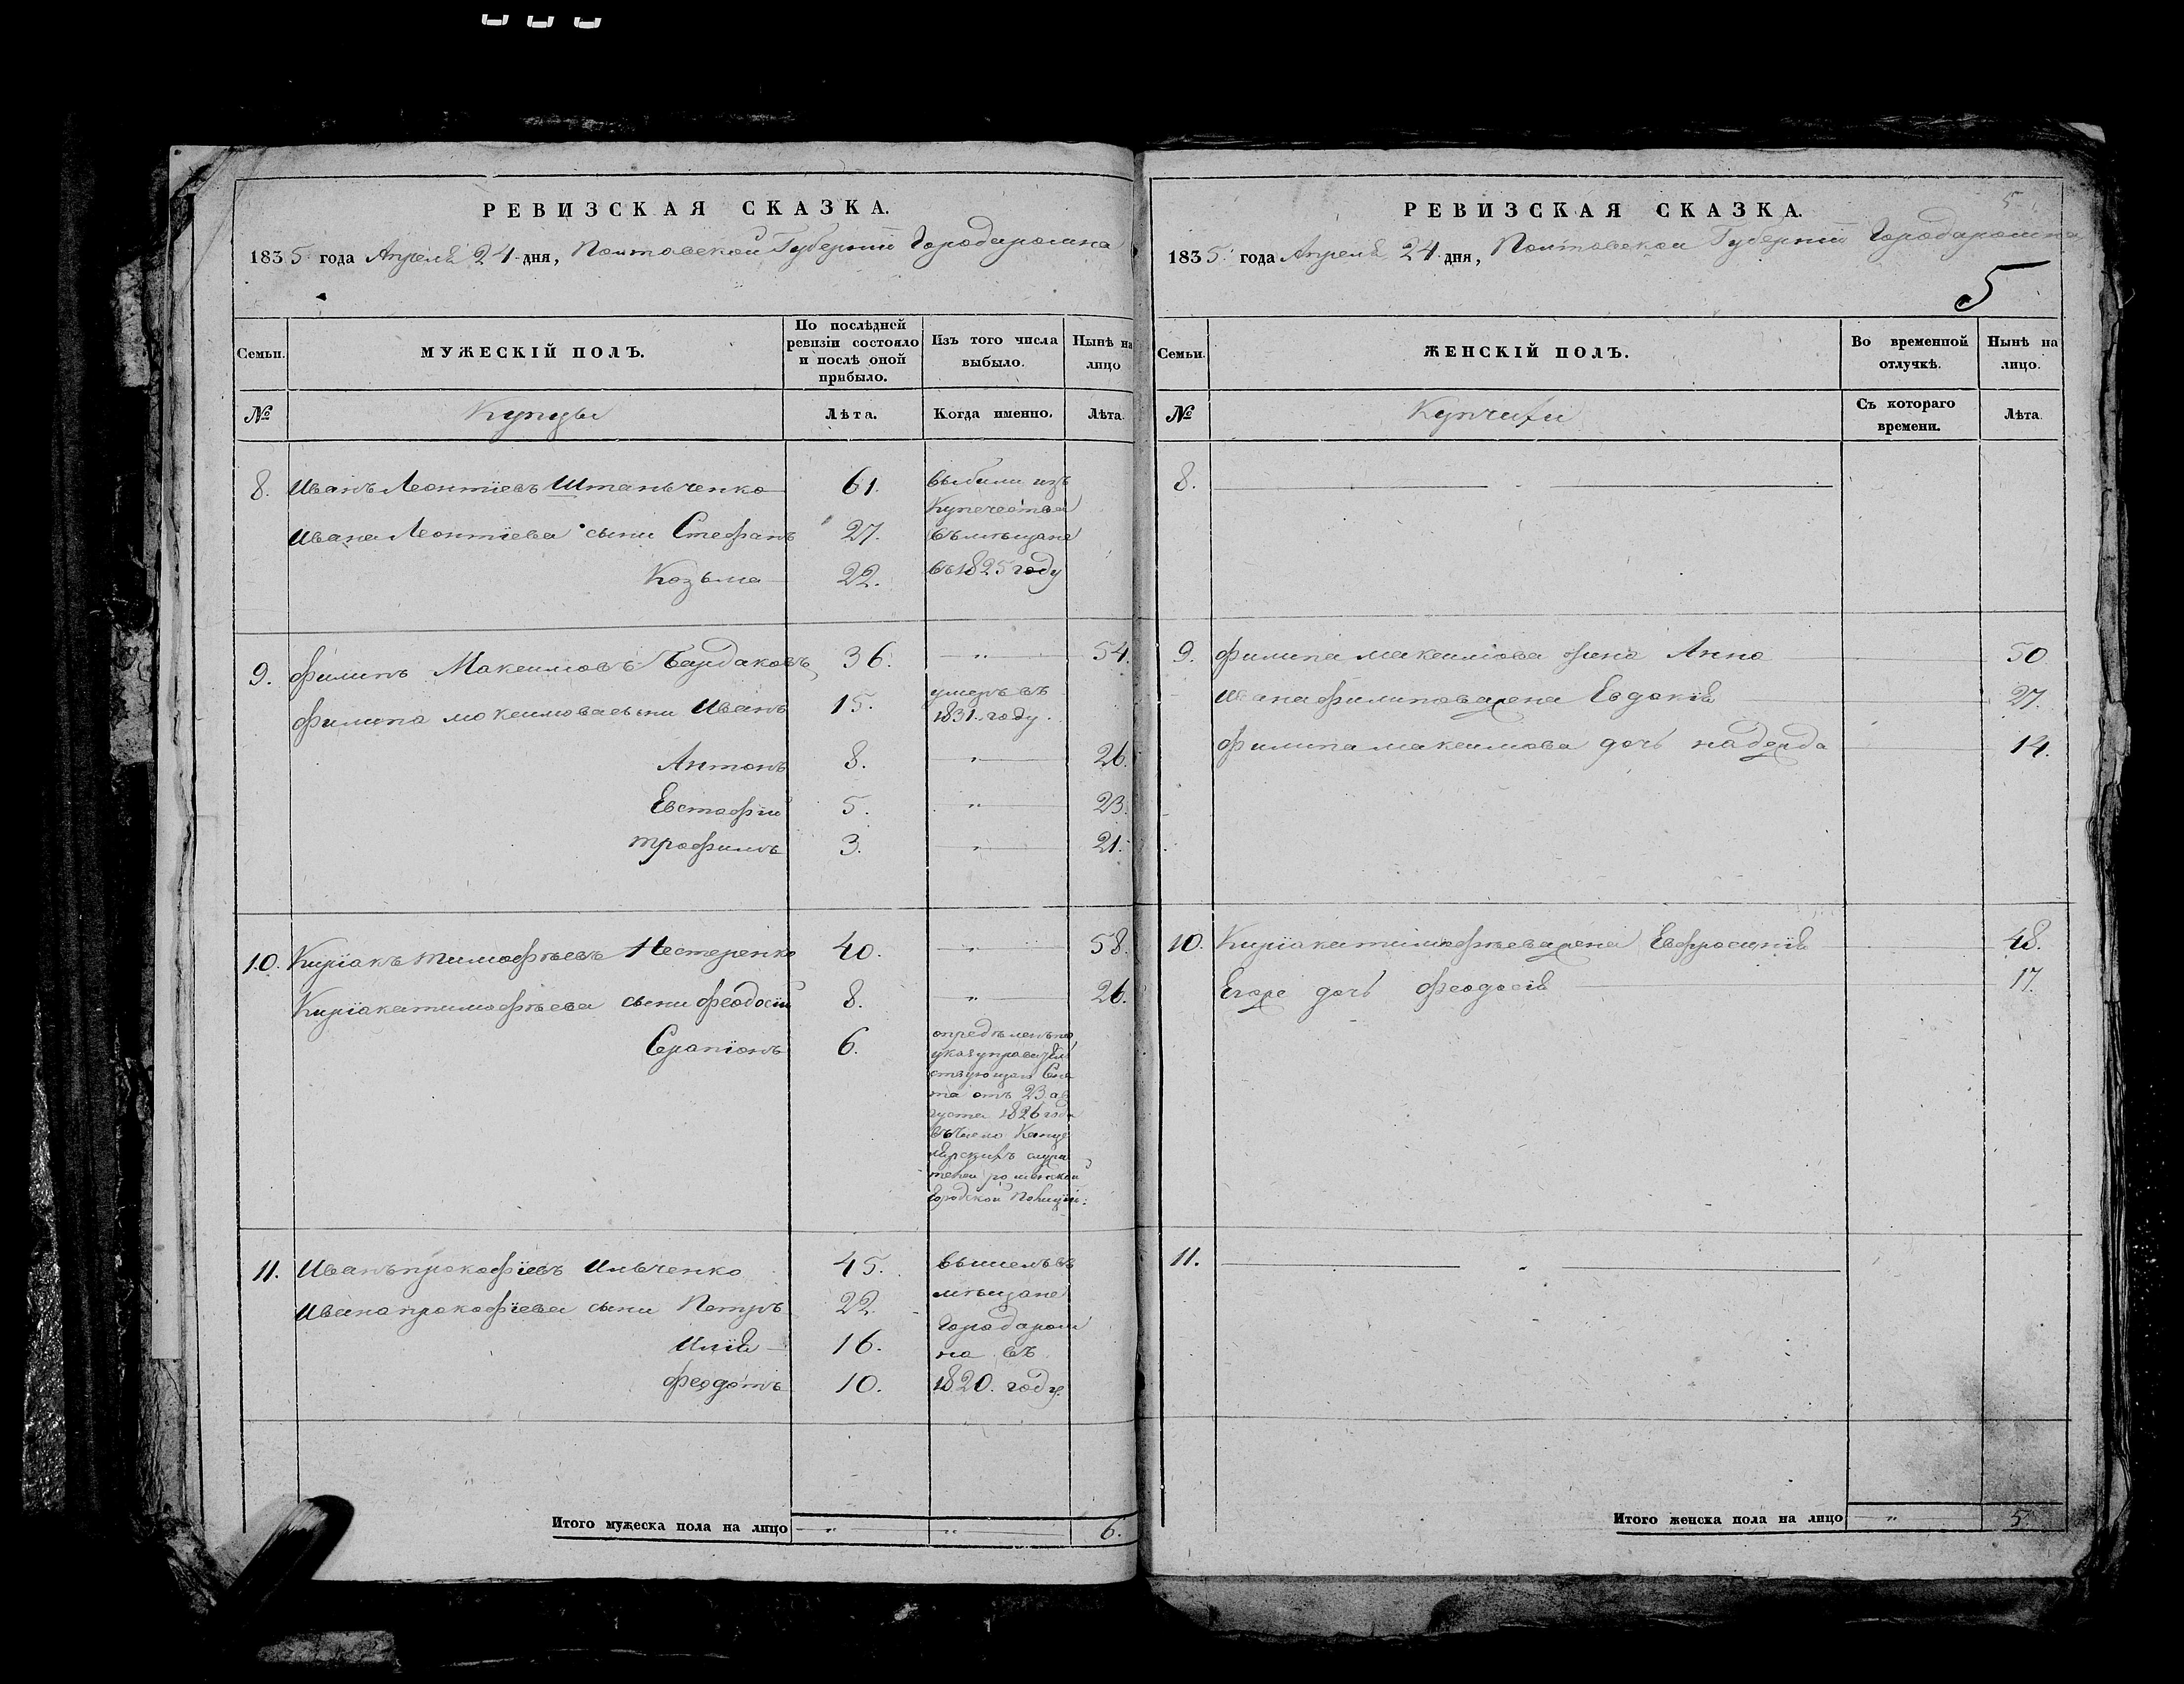 РЕВИЗСКАЯ СКАЗКА.
1835 года Апреля 24 дня, Полтавской Губернии Города ромна
Семьи.
МУЖЕСКІЙ ПОЛЪ.
По послѣдней
ревизіи состояло
и послѣ оной
прибыло.
Изъ того числа
выбыло.
Нынѣ на
лицо
№
Купцы
Лѣта.
Когда именно.
Лѣта.
8. Иванъ Леонтіевъ Штаньченко 61. выбили изъ
Купечества
Ивана Леонтіева сыни Стефанъ 27. въ мѣщане
Козьма 22. въ 1825 году
9. Филипъ Максимовъ Бардаковъ 36. 54.
Филипа максимова сыни Иванъ 15. умеръ въ
1831. году.
Антонъ 8. 26.
Евстафій 5. 23.
трофимъ 3. 21.
10. Киріакъ тимофѣевъ Нестеренко 40. 58.
Киріака тимофѣева сыни феодосій 8. 26.
Серапіонъ 6. опредѣленъ по
указу правител
ствующаго Сена
та отъ 23. ав
густа 1826 года
въ число Канце
лярскихъ служи
телей роменской
Городской Полиціи:
11. Иванъ прокофіевъ Ильченко 45. вышелъ въ
мѣщане
Ивана прокофіева сыни Петръ 22. Города ром
Илія 16. на въ
феодотъ 10. 1820. году.
Итого мужеска пола на лицо 6.
РЕВИЗСКАЯ СКАЗКА.
5
1835 года Апреля 24 дня, Полтавской Губерніи Города ромна
5
Семьи.
ЖЕНСКІЙ ПОЛЪ.
Во временной
отлучкѣ.
Нынѣ на
лицо.
№
Купчихи
Съ котораго
времени.
Лѣта.
8.
9. филипа максимова жена Анна 50
Ивана филипова жена Евдокія 27.
Филипа максимова дочь надежда 14.
10. Киріака тимофѣева жена Евфросинія 48.
Егоже дочь Феодосія 17.
11.
Итого женска пола на лицо 5